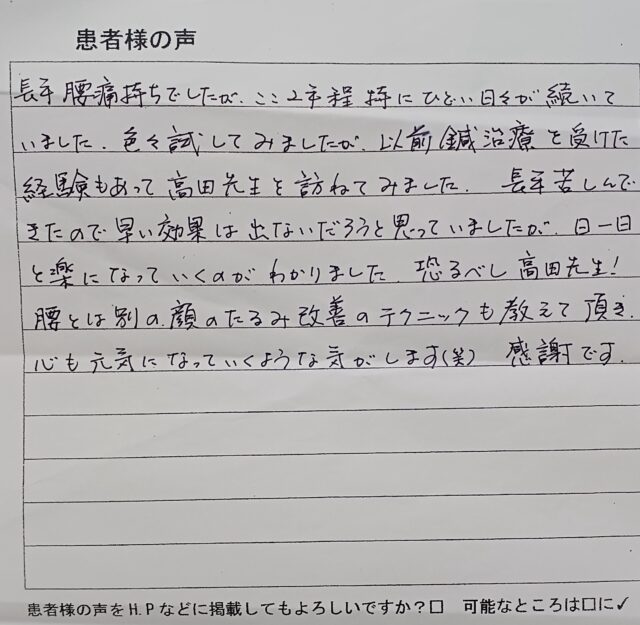 患者様の声
長年腰痛持ちでしたが、ここ2年程特にひどい日々が続いて
いました。色々試してみましたが、以前鍼治療を受けた
経験もあって高田先生を訪ねてみました。 長年苦しんで
きたので早い効果は出ないだろうと思っていましたが、日一日
と楽になっていくのがわかりました。恐るべし高田先生!
腰とは別の、顔のたるみ改善のテクニックも教えて頂き、
心も元気になっていくような気がします(笑) 感謝です。
患者様の声をH.Pなどに掲載してもよろしいですか?□ 可能なところは□に✓